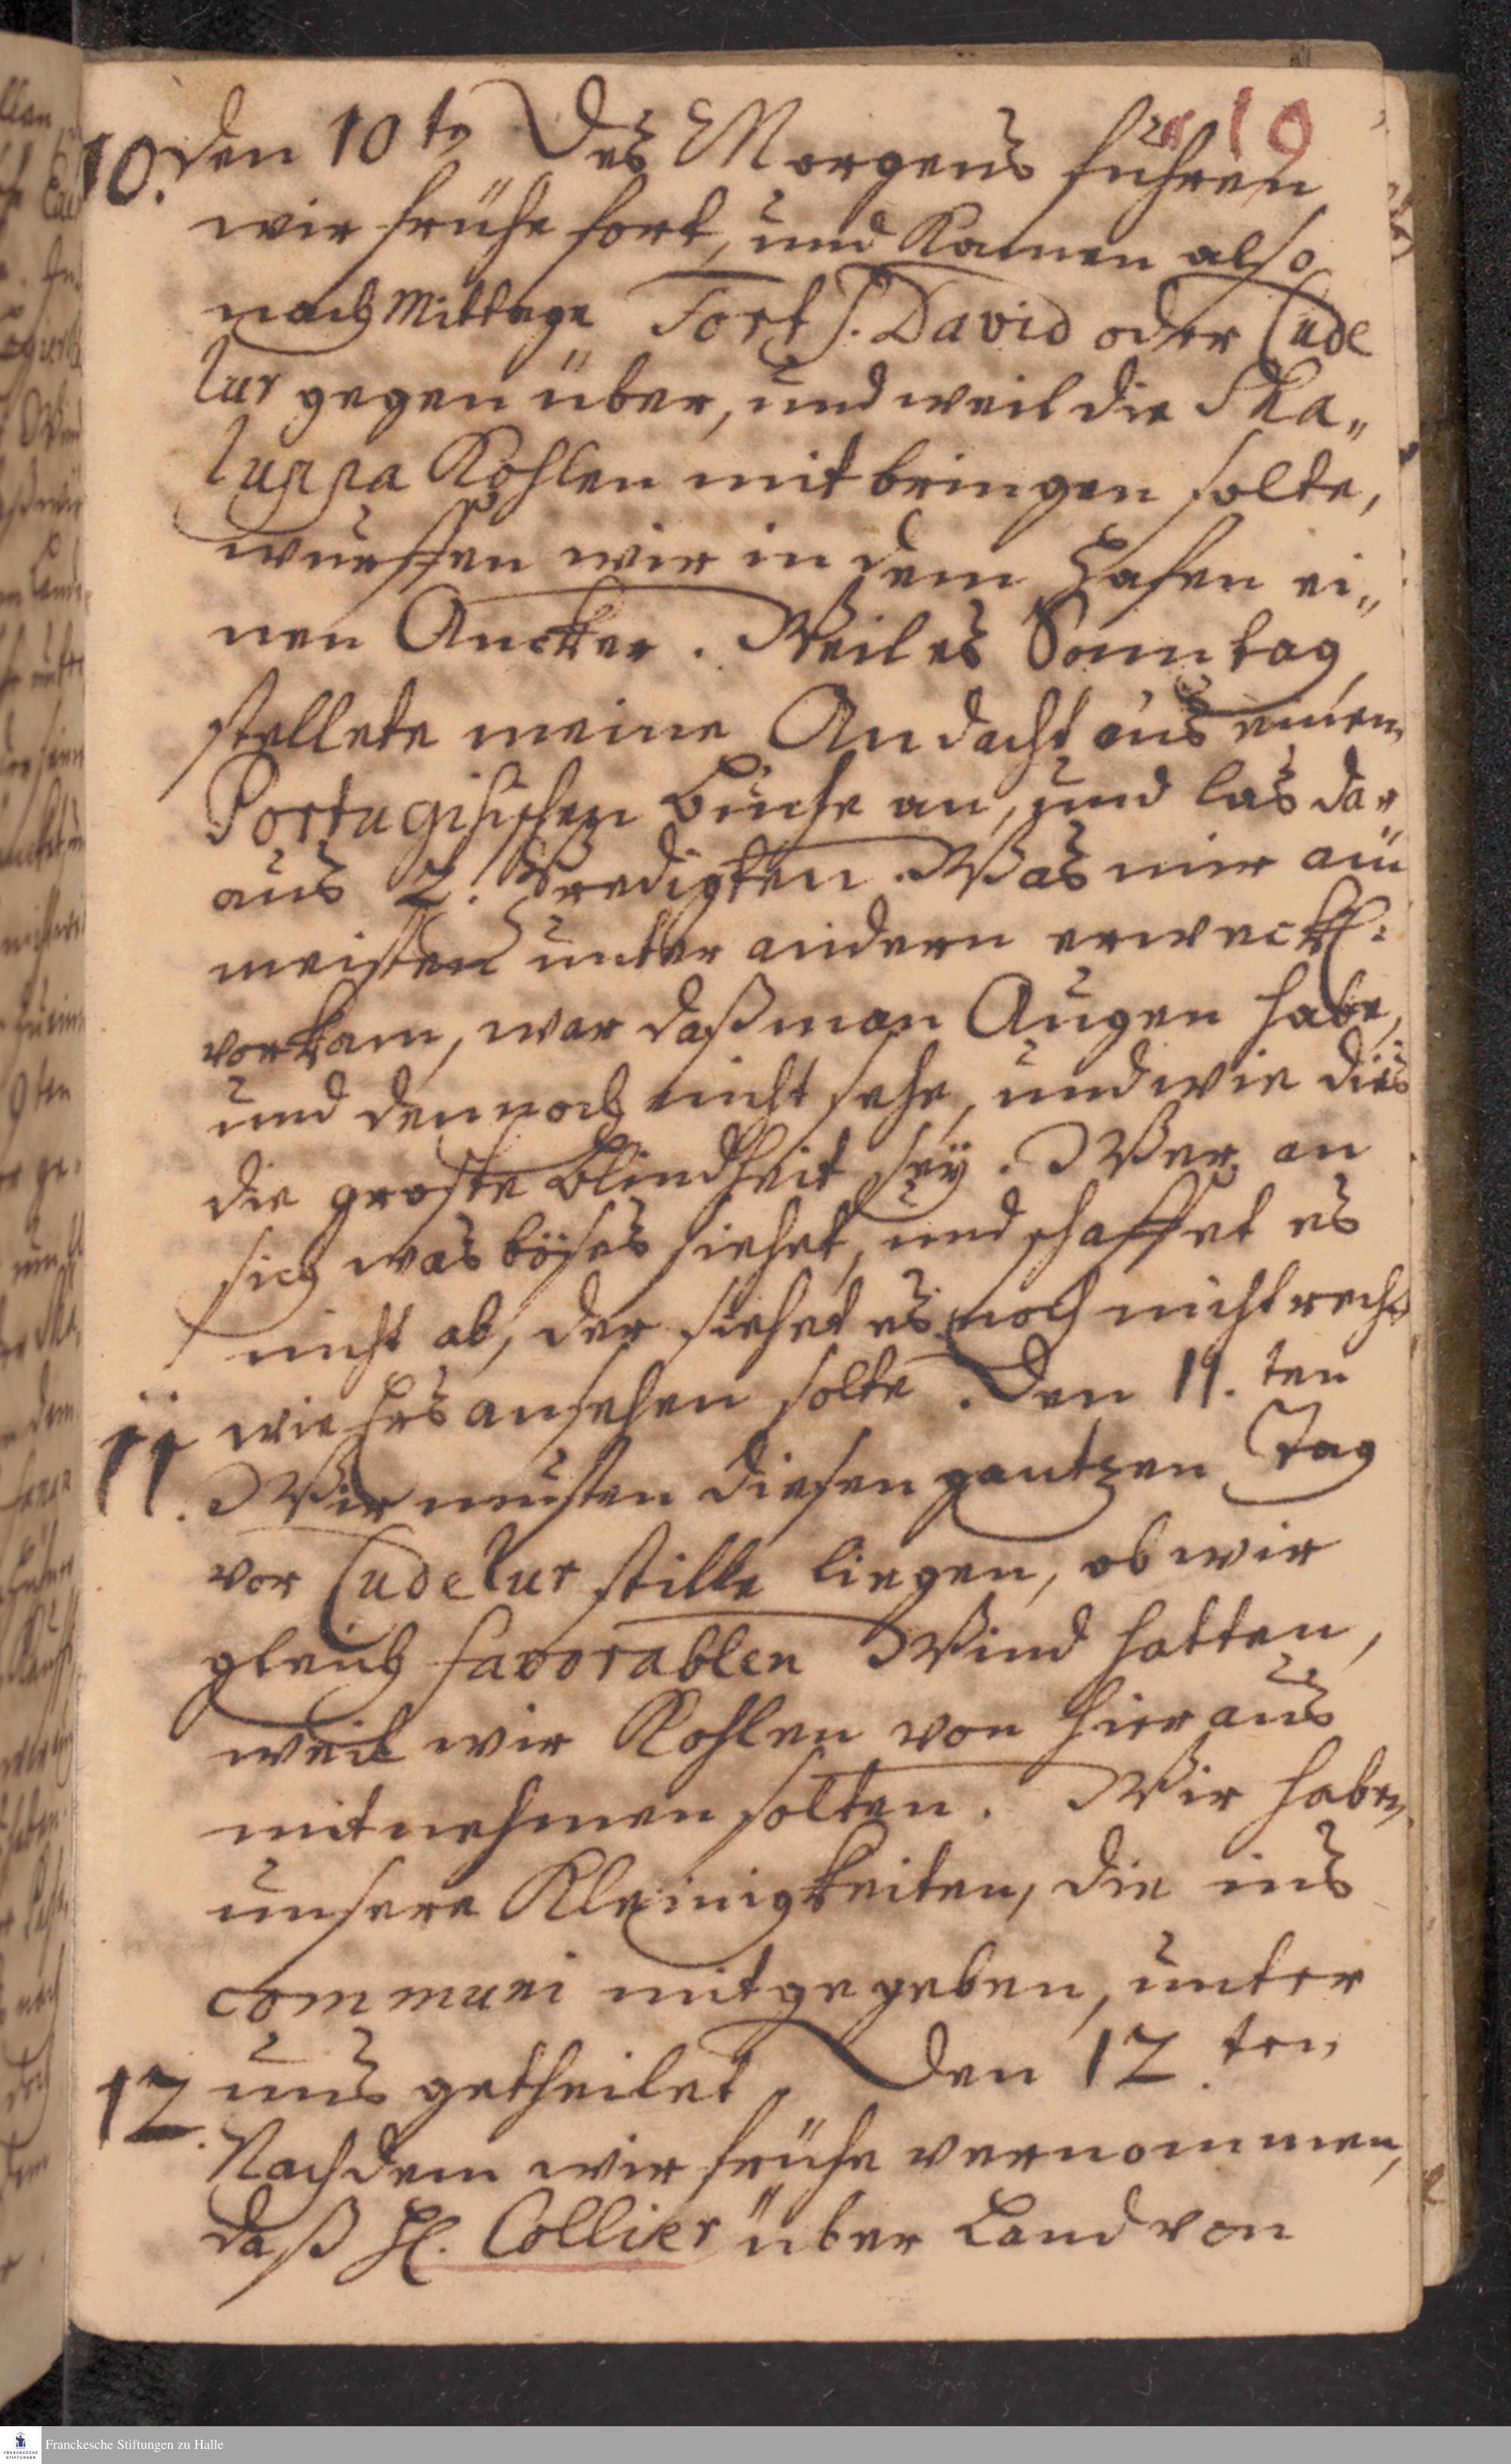 19
10. den 10te Des Morgens fuhren
wir frühe fort, und kamen also
nach Mittage Fort S. David oder Cude
lur gegen über, und weil die Cha„
luppa Kohlen mitbringen solte,
wurffen wir in dem Hafen ei„
nen Ancker. Weil es Sonntag
stellete meine Andacht aus einem
Portugisischen Buche an, und las dar
aus 2. Predigten. Was mir am
meisten unter andern erweckl:
vorkam, war daß man Augen habe,
und dennoch nicht sehe, und wie dies
die groste Blindheit sey. Wer an
sich was böses siehet, und schaffet es
nicht ab, der siehet es noch nicht recht
wie Ers ansehen solte. Den 11. ten
11. Wir musten diesen gantzen Tag
vor Cudelur stille liegen, ob wir
gleich favorablen Wind hatten,
weil wir Kohlen von hieraus
mitnehmen solten. Wir haben
unsere Kleinigkeiten, die ins
communi mitgegeben, unter
12. uns getheilet. Den 12. ten
Nachdem wir frühe vernommen,
daß H. Collier über Land von
Franckesche Stiftungen zu Halle